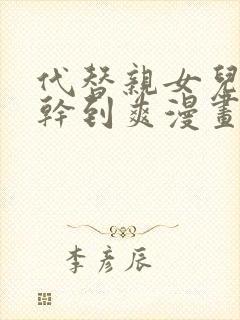 代替親女兒
幹到爽漫畫
李彥辰